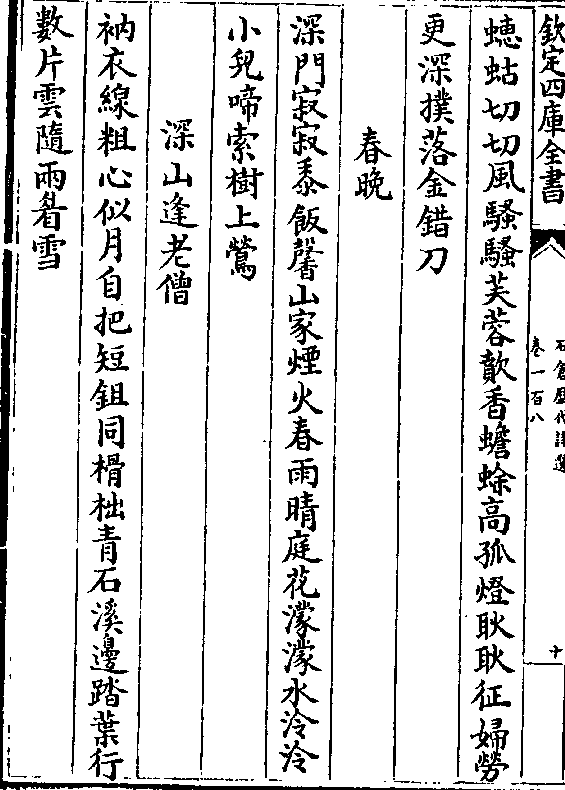 欽定四庫全書
石倉歷代詩選
卷一百八
十
蟪蛄切切風騷騷芙蓉歕香蟾蜍高孤燈耿耿征婦勞
更深撲落金錯刀
春晚
深門寂寂黍飯馨山家煙火春雨晴庭花濛濛水泠泠
小兒啼索樹上鶯
深山逢老僧
衲衣線粗心似月自把短鉏同榾柮青石溪邊踏葉行
數片雲隨兩眉雪